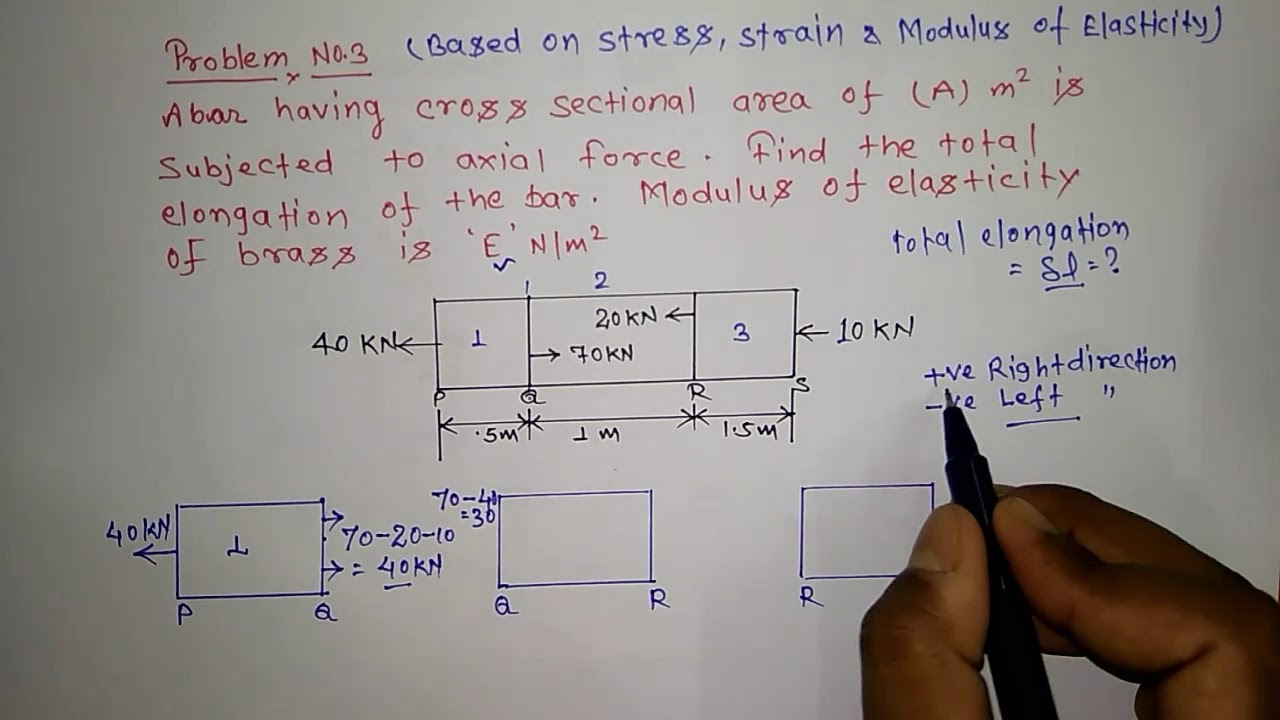 Problem No.3 (Based on stress, strain & Modulus of Elasticity)
A bar having cross sectional area of (A) m² is
subjected to axial force. Find the total
elongation of the bar. Modulus of elasticity
of brass is 'E' N/m²
total elongation
= δl = ?
1 2
40 KN 1 20KN 3 10 KN
70KN
P Q R S
.5m 1 m 1.5m
+ve Right direction
-ve Left "
40KN 1 70-20-10
= 40KN
P Q
70-40
=30
Q R
R